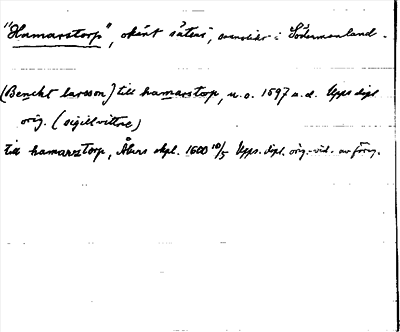 "Hamarstorp", okänt säteri, i Södermanland.
(Benckt larsson) till hamarstorp, u.o. 1597 u.d. Upps dipl
orig. (sigillvittne)
till hamarstorp, Åkers skpl. 1600 10/5 Upps. dipl. orig. vid. av föreg.